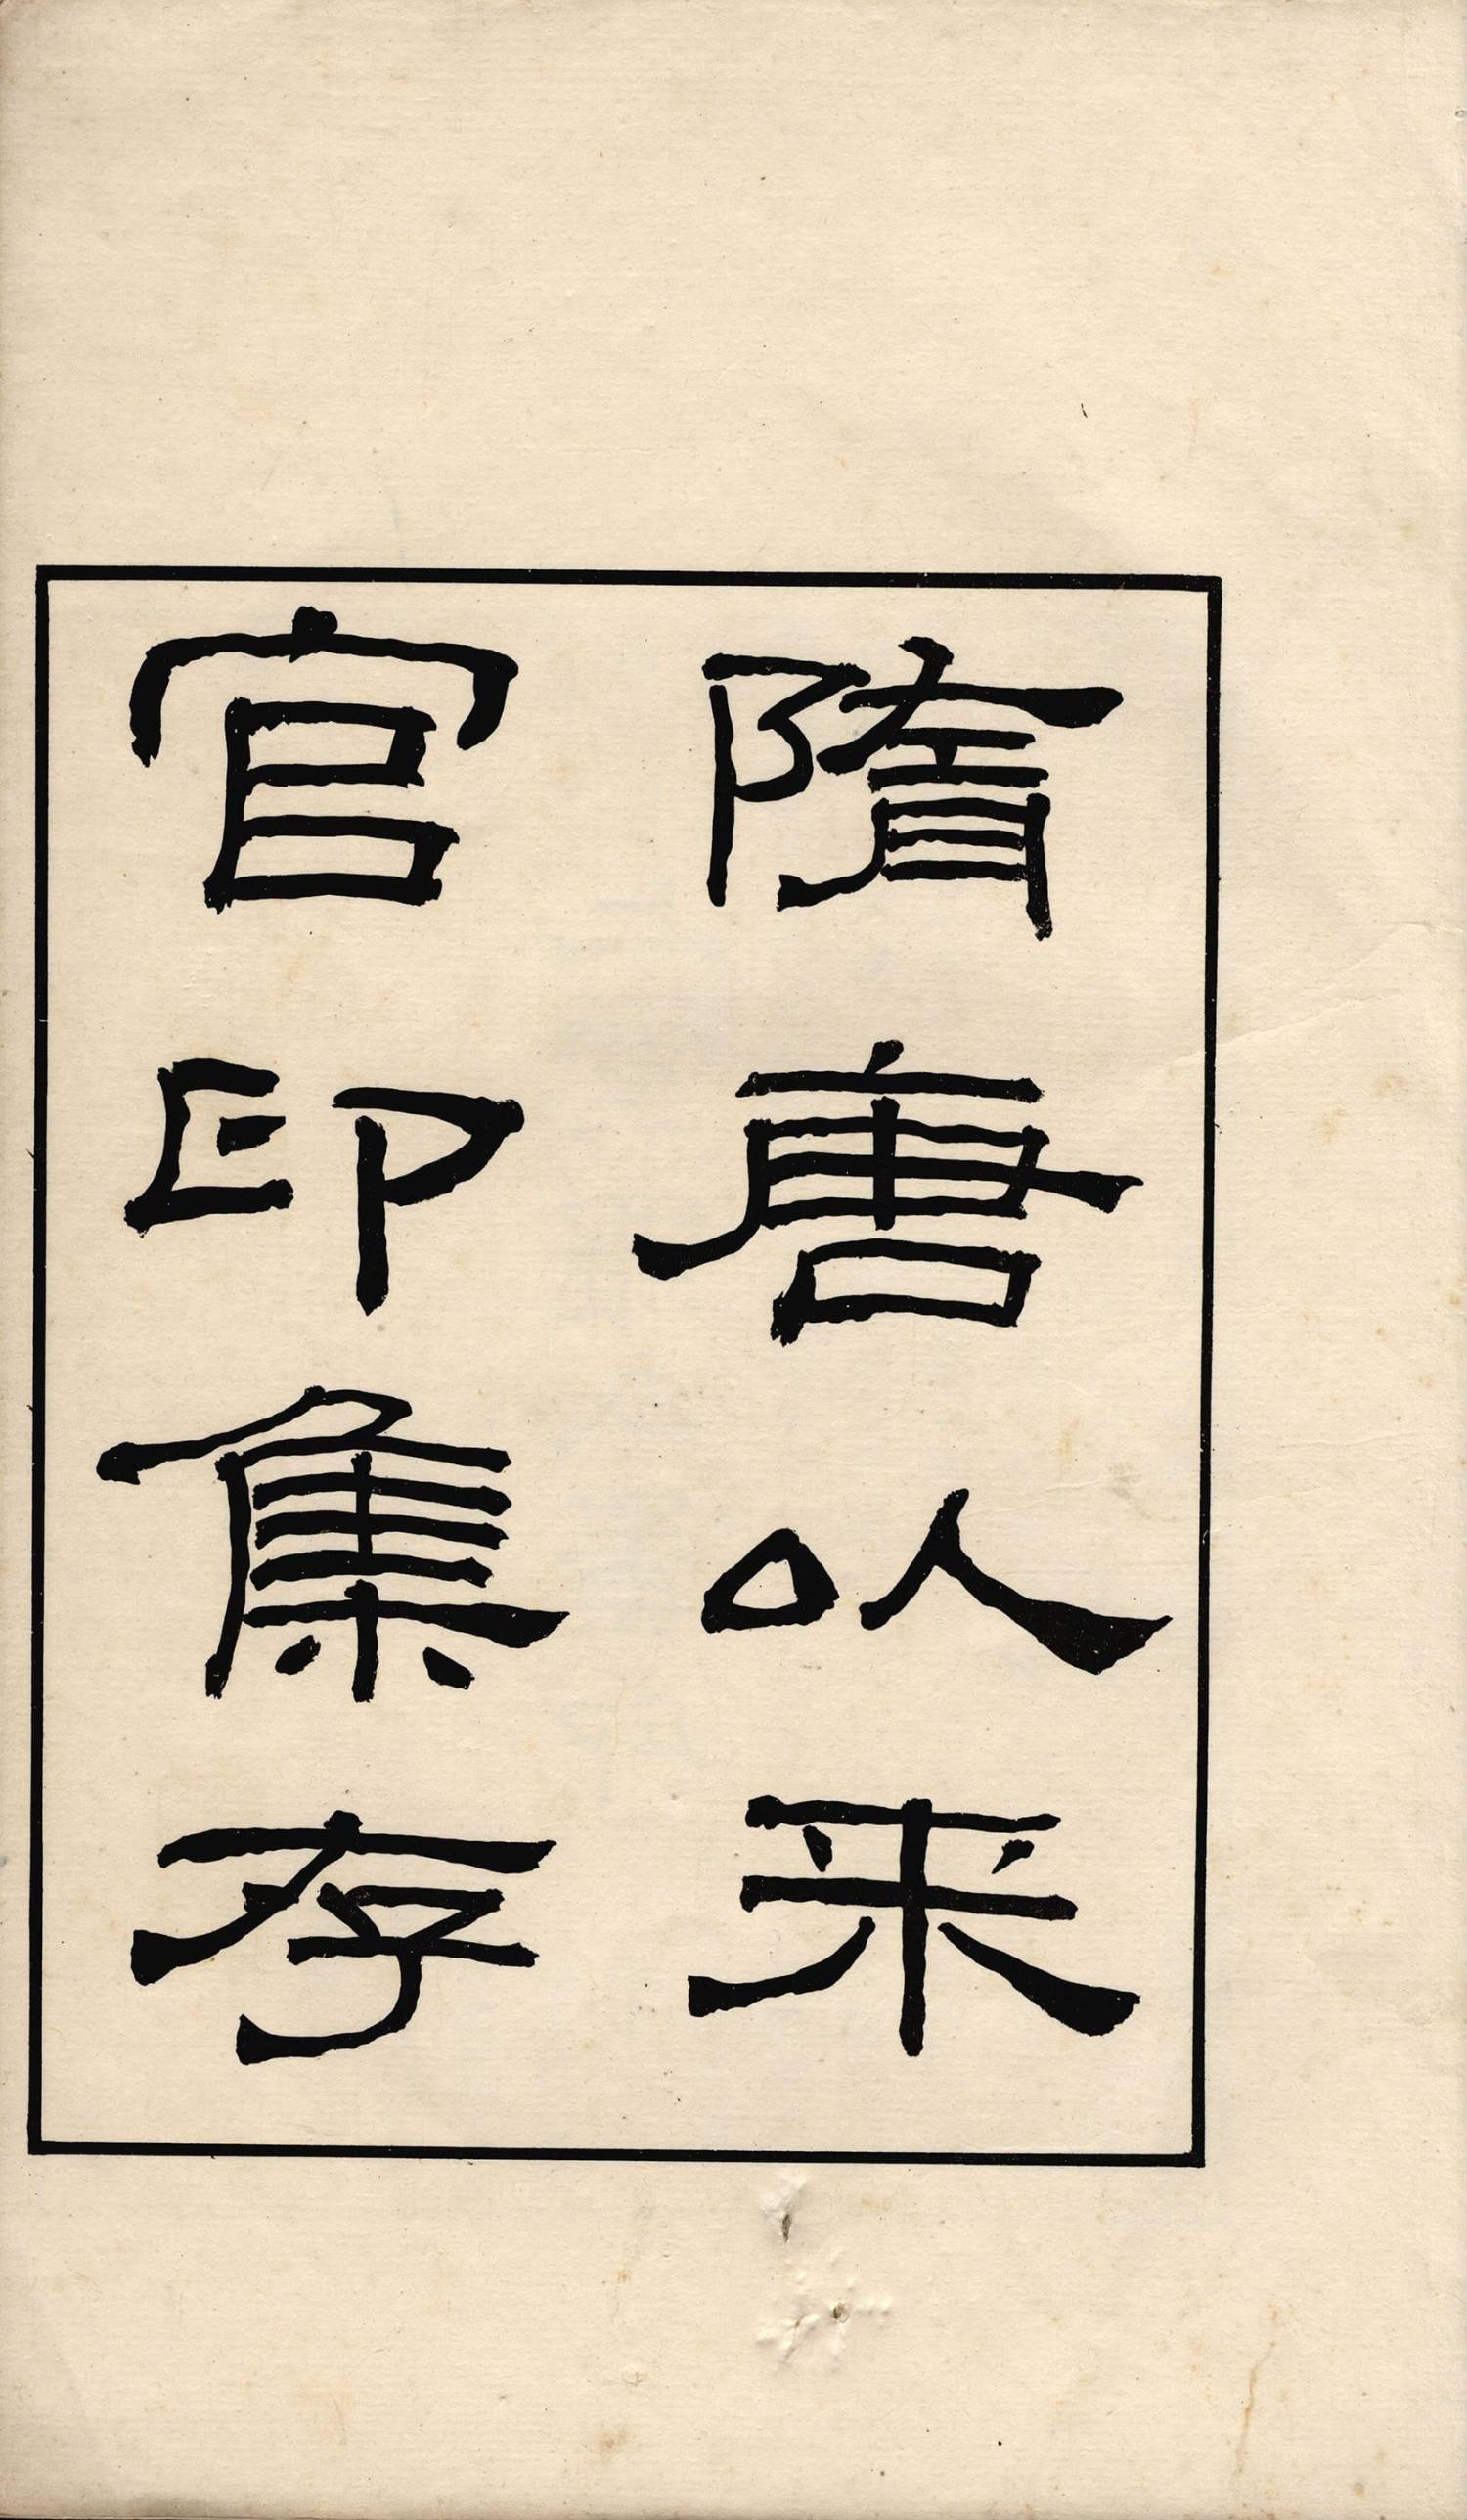 隋唐以来
官印集存